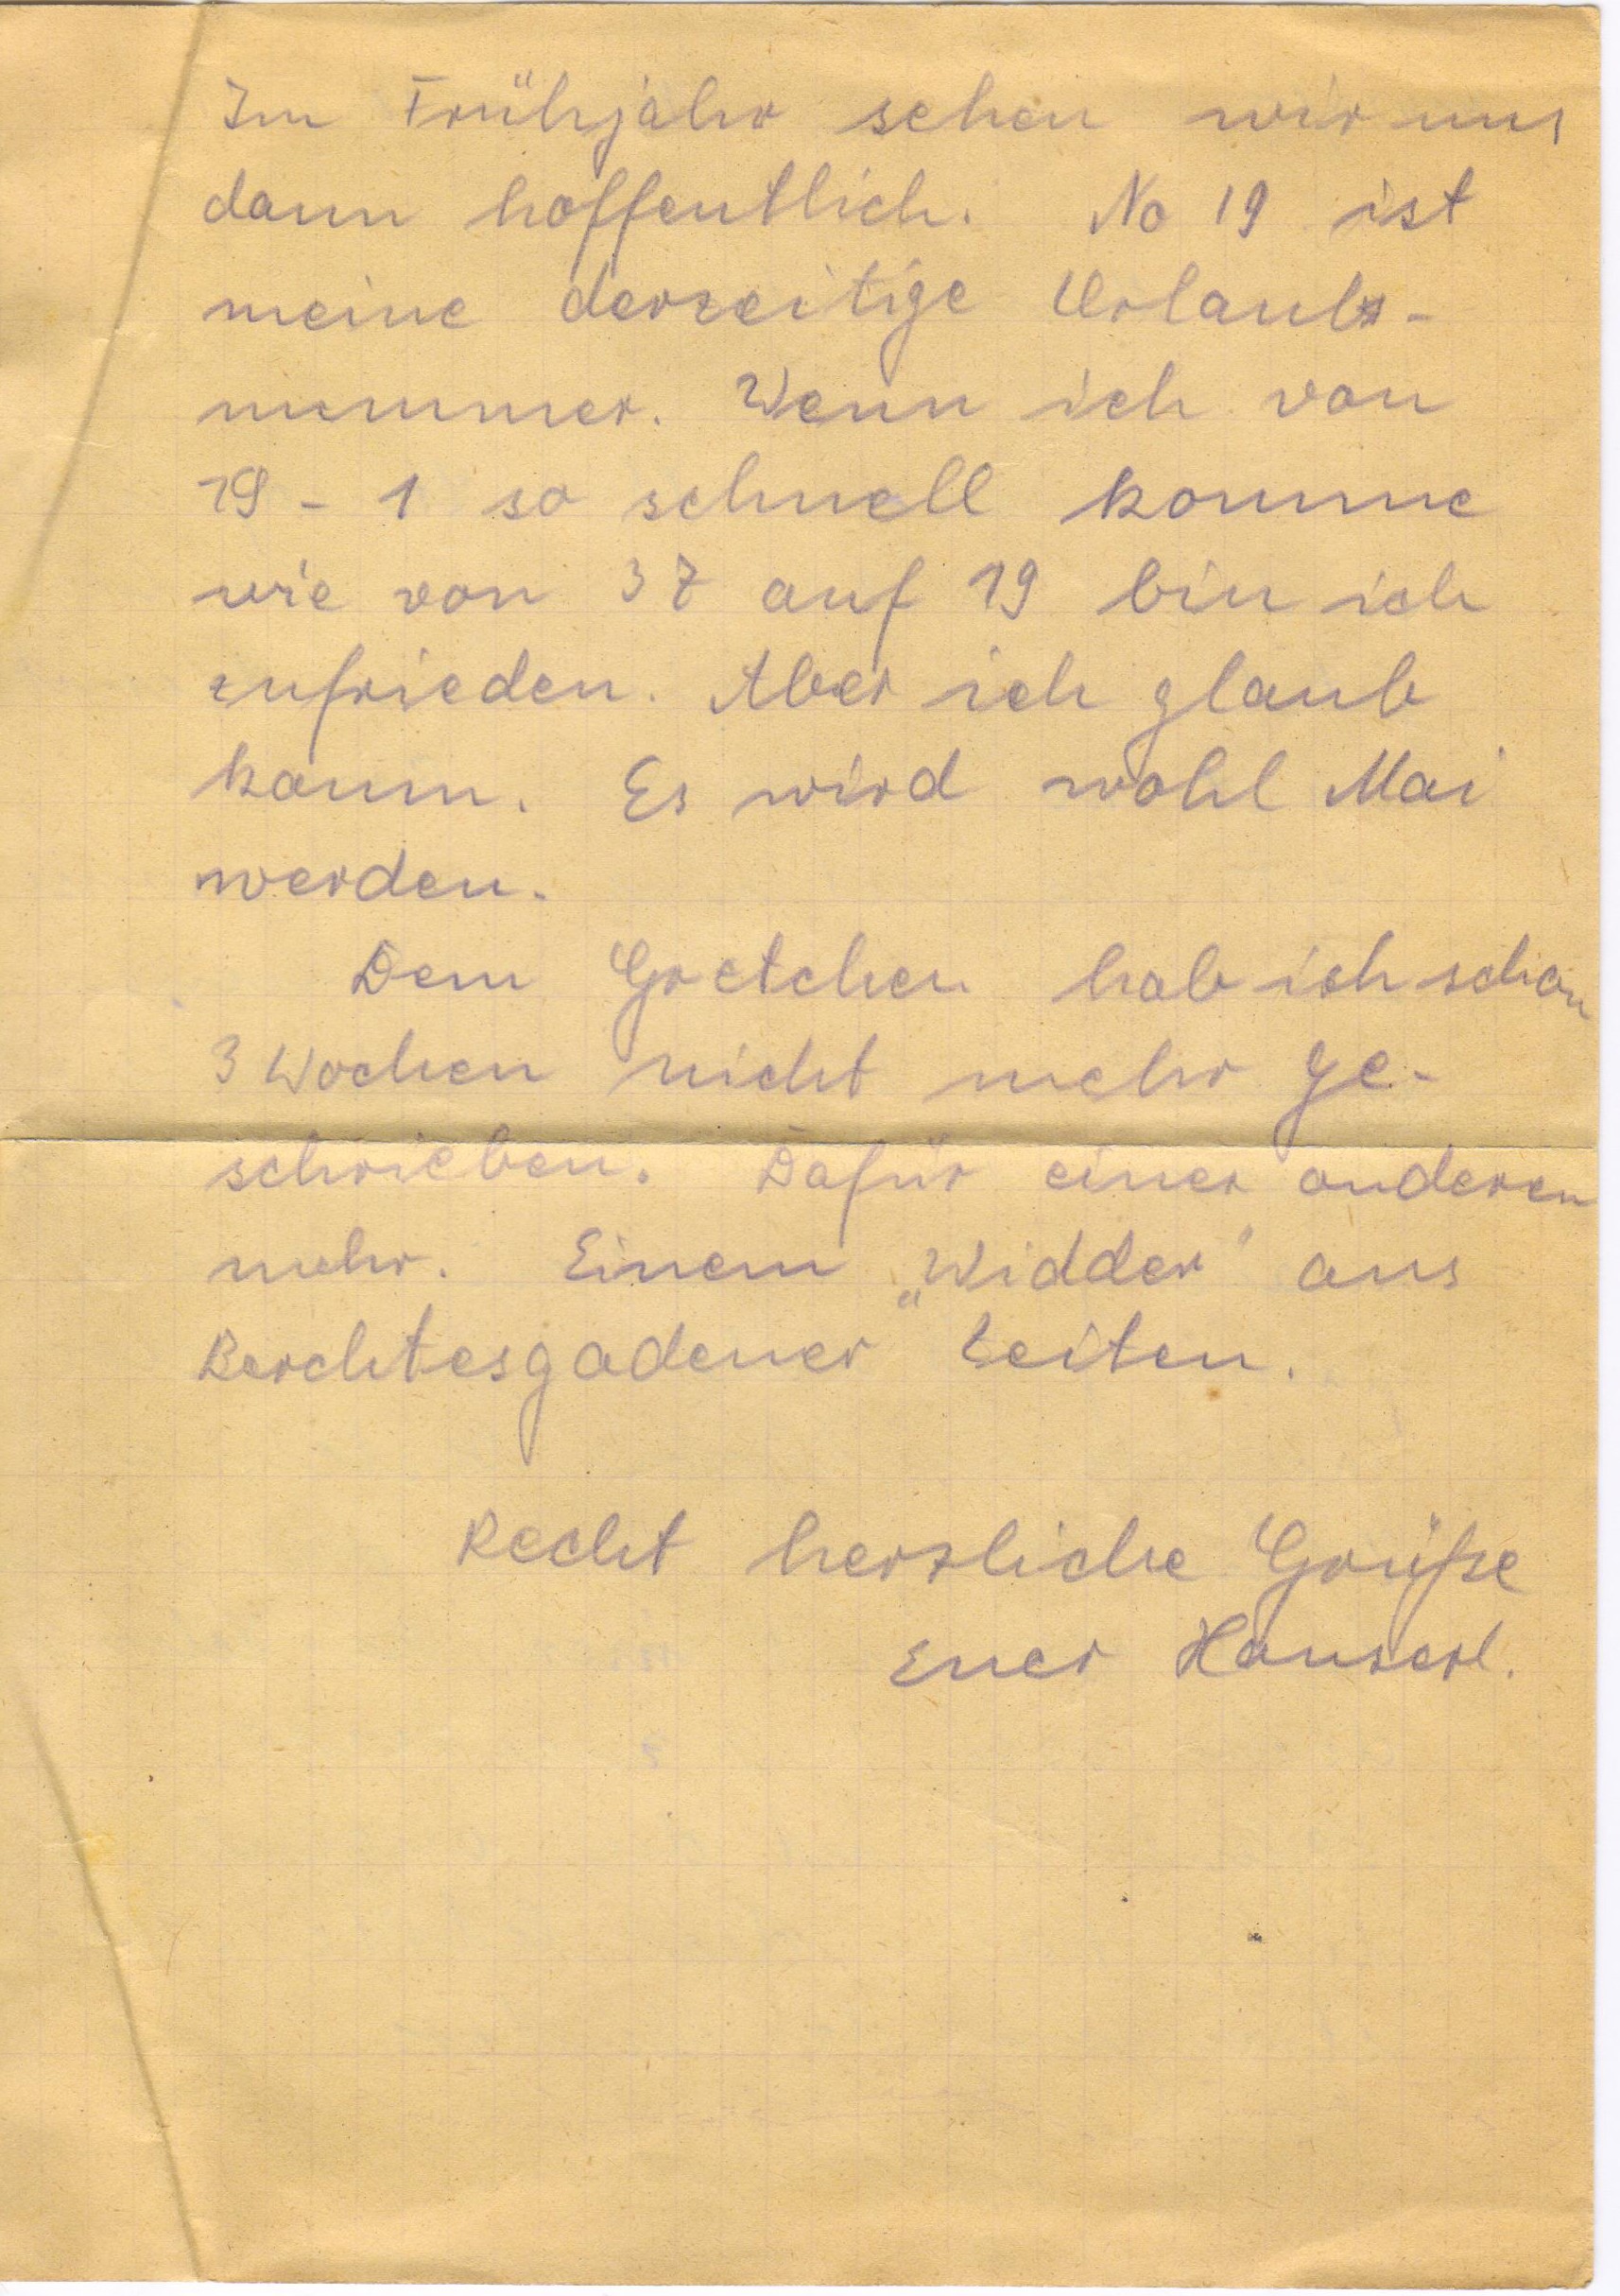 Im Frühjahr sehen wir uns
dann hoffentlich. No 19 ist
meine derzeitige Urlaubs-
nummer. Wenn ich von
19 - 1 so schnell komme
wie von 37 auf 19 bin ich
zufrieden. Aber ich glaub
kaum. Es wird wohl Mai
werden.
Dem Gretchen hab ich schon
3 Wochen nicht mehr ge-
schrieben. Dafür einer anderen
mehr. Einem „Widder" aus
Berchtesgadener Zeiten.
Recht herzliche Grüße
Euer Hanserl.